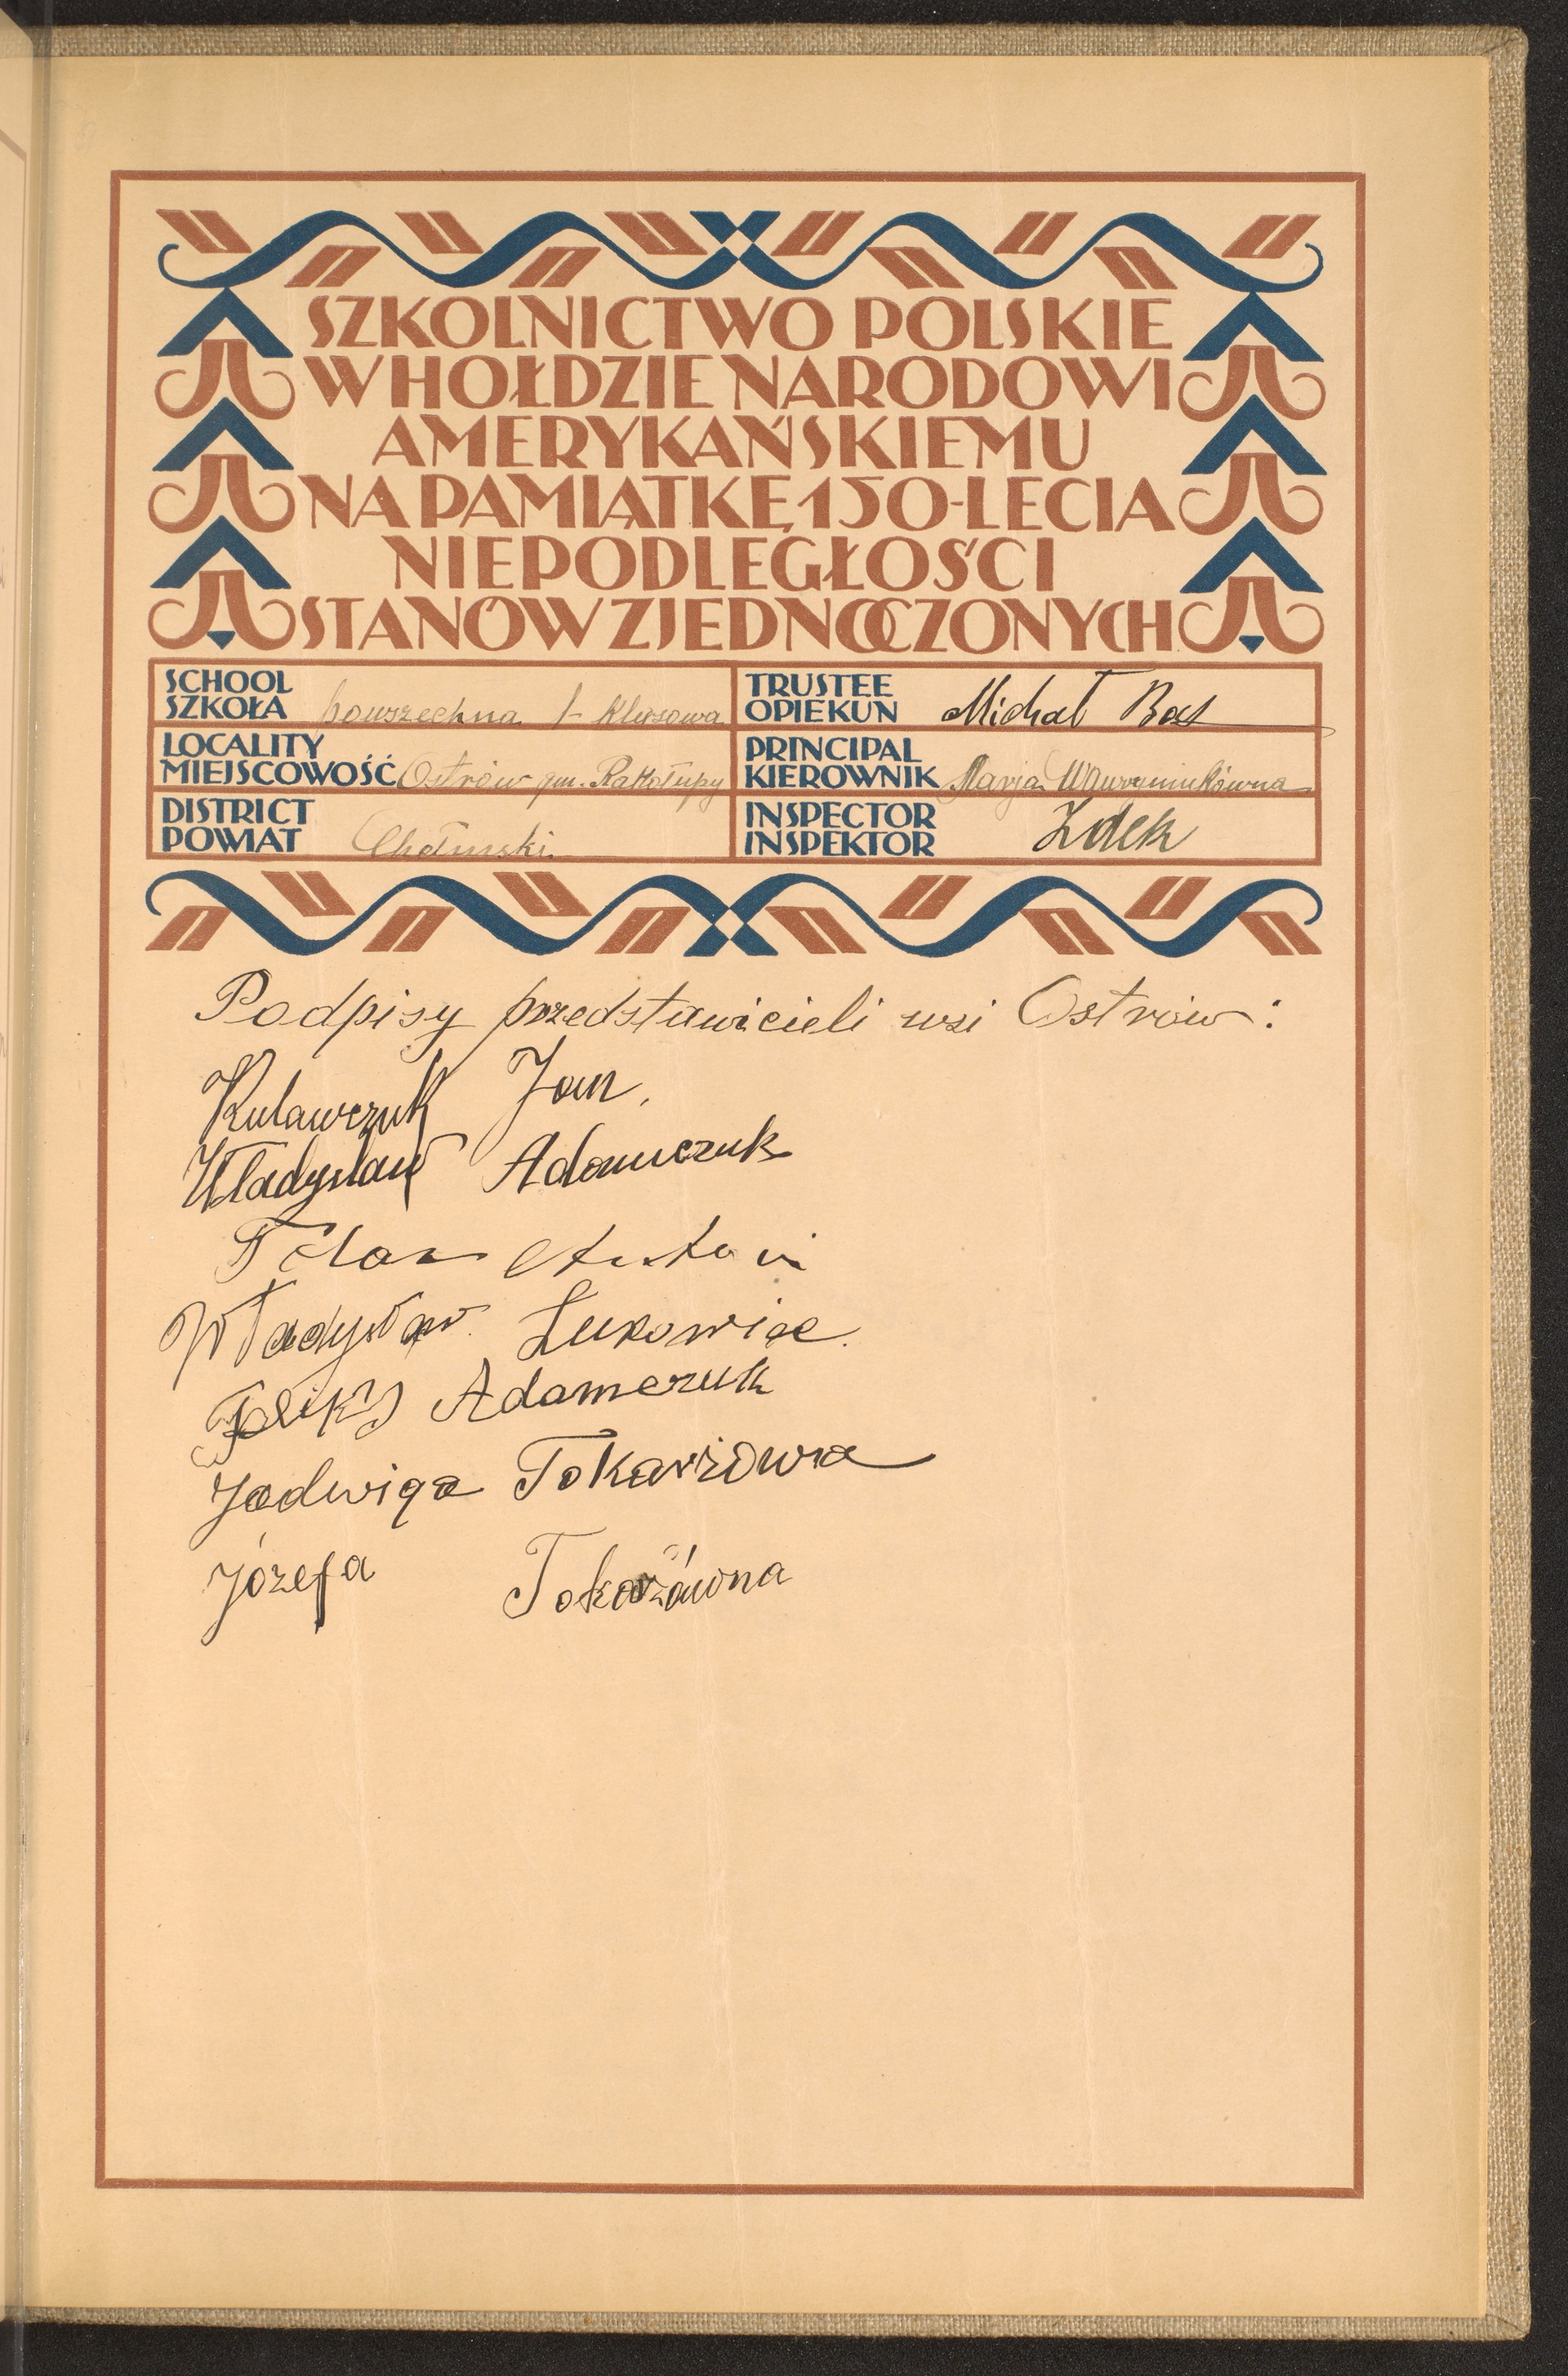 SZKOLNICTWO POLSKIE
W HOŁDZIE NARODOWI
AMERYKAŃSKIEMU
NA PAMIĄTKĘ 150-LECIA
NIEPODLEGŁOŚCI
STANÓW ZJEDNOCZONYCH
SCHOOL
SZKOŁA powszechna 1-klasowa
LOCALITY
MIEJSCOWOŚĆ Ostrów gm. Rakołupy
DISTRICT
POWIAT Chełmski
TRUSTEE
OPIEKUN Michał
PRINCIPAL
KIEROWNIK Marja Wawryniukówna
INSPECTOR
INSPEKTOR Zdek
Podpisy przedstawicieli wsi Ostrów:
Kulawczuk Jan.
Władysław Adamczuk
Antoni
Władysław Łukowiec.
Feliks Adamczuk
Jadwiga Tokarzowa
Józefa Tokarzówna